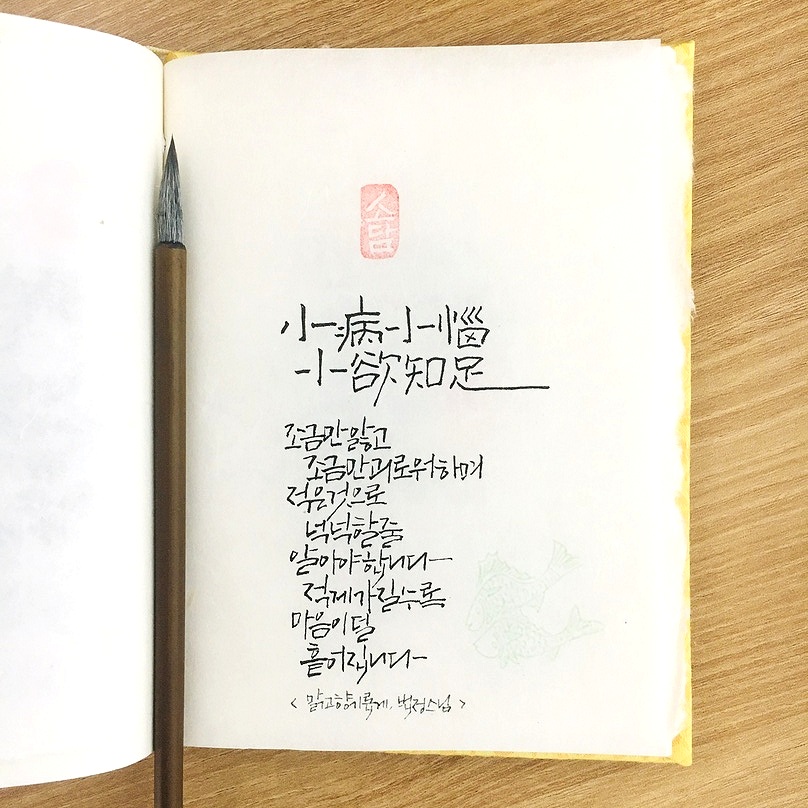 소담
小病小惱
小欲知足
조금만 앓고
조금만 괴로워하며
적은것으로
넉넉할줄
알아야합니다
적게가질수록
마음이 덜
흩어집니다
< 맑고향기롭게, 법정스님 >